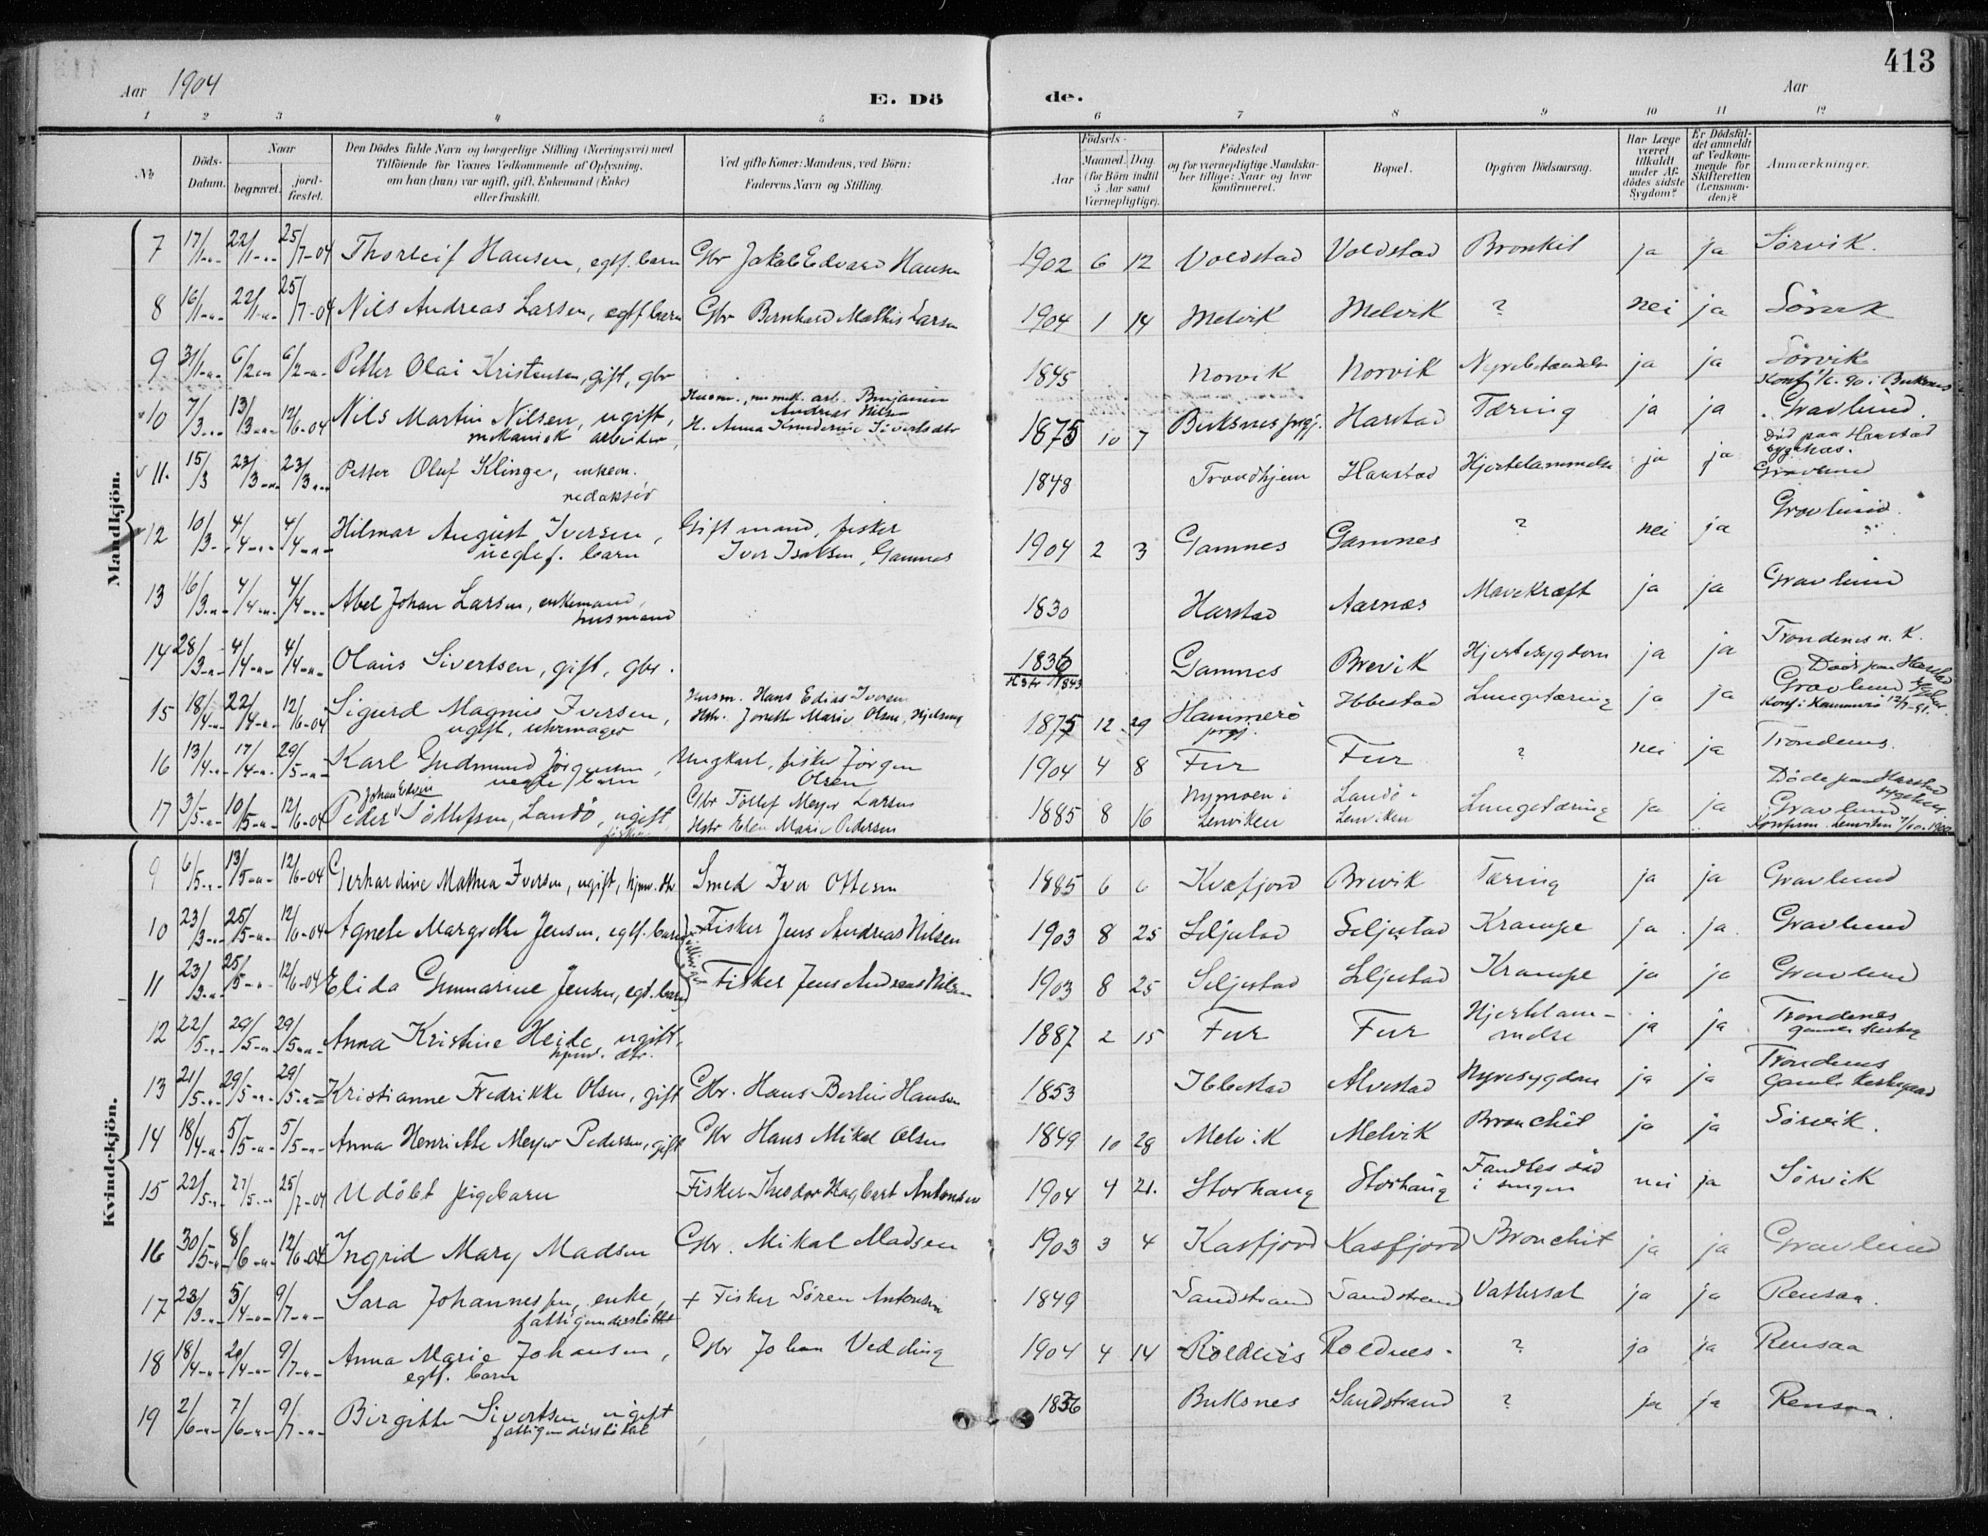 413
Aar 1904 E. Dö de. Aar
1 2 3 4 5 6 7 8 9 10 11 12
No Döds-Datum. Naar begravet. jord-fæstet. Den Dödes fulde Navn og borgerlige Stilling (Næringsvei) med Tilföiende for Voxnes Vedkommende af Oplysning, om han (hun) var ugift, gift, Enkemand (Enke) eller fraskilt. Ved gifte Koner: Mandens, ved Börn: Faderens Navn og Stilling. Födsels- Aar Maaned. Dag (for Börn indtil 5 Aar samt Værnepligtige). Födested og for værnepligtige Mandskaber tillige: Naar og hvor konfirmeret. Bopæl. Opgiven Dödsaarsag. Har Læge været tilkaldt under Afdödes sidste Sygdom? Er Dödsfaldet anmeldt af Vedkommende for Skifteretten (Lensmanden)? Anmærkninger.
Mandkjön.
7 17/1 22/1 25/7-04 Thorleif Hansen, egtf. barn Gbr Jakob Edvard Hansen 1902 6 12 Voldstad Voldstad Bronkit ja ja Sørvik.
8 16/1 22/1 25/7-04 Nils Andreas Larsen, egtf barn Gbr Bernhard Mathis Larsen 1904 1 14 Melvik Melvik ? nei ja Sörvik
9 31/1 6/2 6/2 Petter Olai Kristensen, gift, gbr 1845 Norvik Norvik Nyrebetændelse ja ja Sørvik
10 7/3 13/3 12/6-04 Nils Martin Nilsen, ugift, mekanisk arbeider Husm., Benjamin Andreas Nilsen H. Anna 1875 10 7 Buksnes prgj. Harstad Tæring ja ja Konf. i Buksnes Gravlund. Død paa Harstad sygehus.
11. 15/3 23/3 23/3 Petter Oluf Klinge, enkem. redaktør 1848 Trondhjem Harstad Hjertelammelse ja ja Gravlund
12 10/3 4/4 4/4 Hilmar August Iversen, uegtef. barn Gift mand, fisker Iver Isaksen, Gamnes 1904 2 3 Gamnes Gamnes ? nei ja Gravlund.
13 16/3 4/4 4/4 Abel Johan Larsen, enkemand, husmand 1830 Harstad Aarnes Mavekræft ja ja Gravlund
14 28/3 4/4 4/4 Olaus Sivertsen, gift, gbr. 1836 Gamnes Brevik Hjertesygdom ja ja Trondenes n. K.
15 18/4 22/4 12/6-04 Sigurd Magnus Iversen, ugift, uhrmager Husm. Hans Edias Iversen Hstr. Jonette Marie Olsen, 1875 12 29 Hammerö prgj. Ibbestad Lungetæring ja ja Döds paa Harstad Gravlund Konf. i Hammerö
16 13/4 17/4 29/5 Karl Gudmund Jörgensen, uegte barn Ungkarl, fisker Jörgen Olsen 1904 4 8 Fur Fur ? nei ja Trondenes.
17 3/5 10/5 12/6-04 Peder Johan Edvin Töllefsen, Landö, ugift, Gbr Töllef Meyer Larsen Hstr Elen Marie Pedersen 1885 8 16 Nymoen i Lenviken Landö i Lenviken Lungetæring ja ja Döde paa Harstad sygehus Gravlund Konfirm. Lenviken
Kvindekjön.
9 6/5 13/5 12/6-04 Gerhardine Mathea Iversen, ugift, hjmv. dtr Smed Iver Ottesen 1885 6 6 Kvæfjord Brevik Tæring ja ja Gravlund
10 23/3 25/5 12/6-04 Agnete Margrethe Jensen, egtf. barn Fisker Jens Andreas Nilsen 1903 8 25 Seljestad Seljestad Krampe ja ja Gravlund
11 23/3 25/5 12/6-04 Elida Gunnarine Jensen, egt. barn Fisker Jens Andreas Nilsen 1903 8 25 Seljestad Seljestad Krampe ja ja Gravlund
12 22/5 29/5 29/5 Anna Kristine Heide, ugift, hjmv. dtr. 1887 2 15 Fur Fur Hjertelammelse ja ja Trondenes
13 21/5 29/5 29/5 Kristianne Fredrikke Olsen, gift Gbr. Hans Berlin Hansen 1853 Ibbestad Alvestad Nyresygdom ja ja Trondenes Gamle Kirkegaard
14 18/4 5/5 5/5 Anna Henriette Meyer Pedersen, gift Gbr Hans Mikal Olsen 1849 10 28 Melvik Melvik Bronchit ja ja Sörvik.
15 22/5 27/5 25/7-04 Udöbt pigebarn Fisker Theodor Hagbart Antonsen 1904 4 21. Storhaug Storhaug Fandtes död i sengen nei ja Sörvik
16 30/5 8/6 12/6-04 Ingrid Mary Madsen Gbr. Mikal Madsen 1903 3 4 Kasfjord Kasfjord Bronchit ja ja Gravlund
17 23/3 5/4 9/7 Sara Johannesen, enke, fattigunderstöttet + Fisker Sören Antonsen 1849 Sandstrand Sandstrand Vattersot ja ja Rensaa.
18 18/4 20/4 9/7 Anna Marie Johansen, egtf. barn Gbr Johan Vedding 1904 4 14 Roldnes Roldnes ? ja ja Rensaa
19 2/6 7/6 9/7 Birgitte Sivertsen, ugift fattigunderstöttet 1836 Buksnes Sandstrand ? ja ja Rensaa.